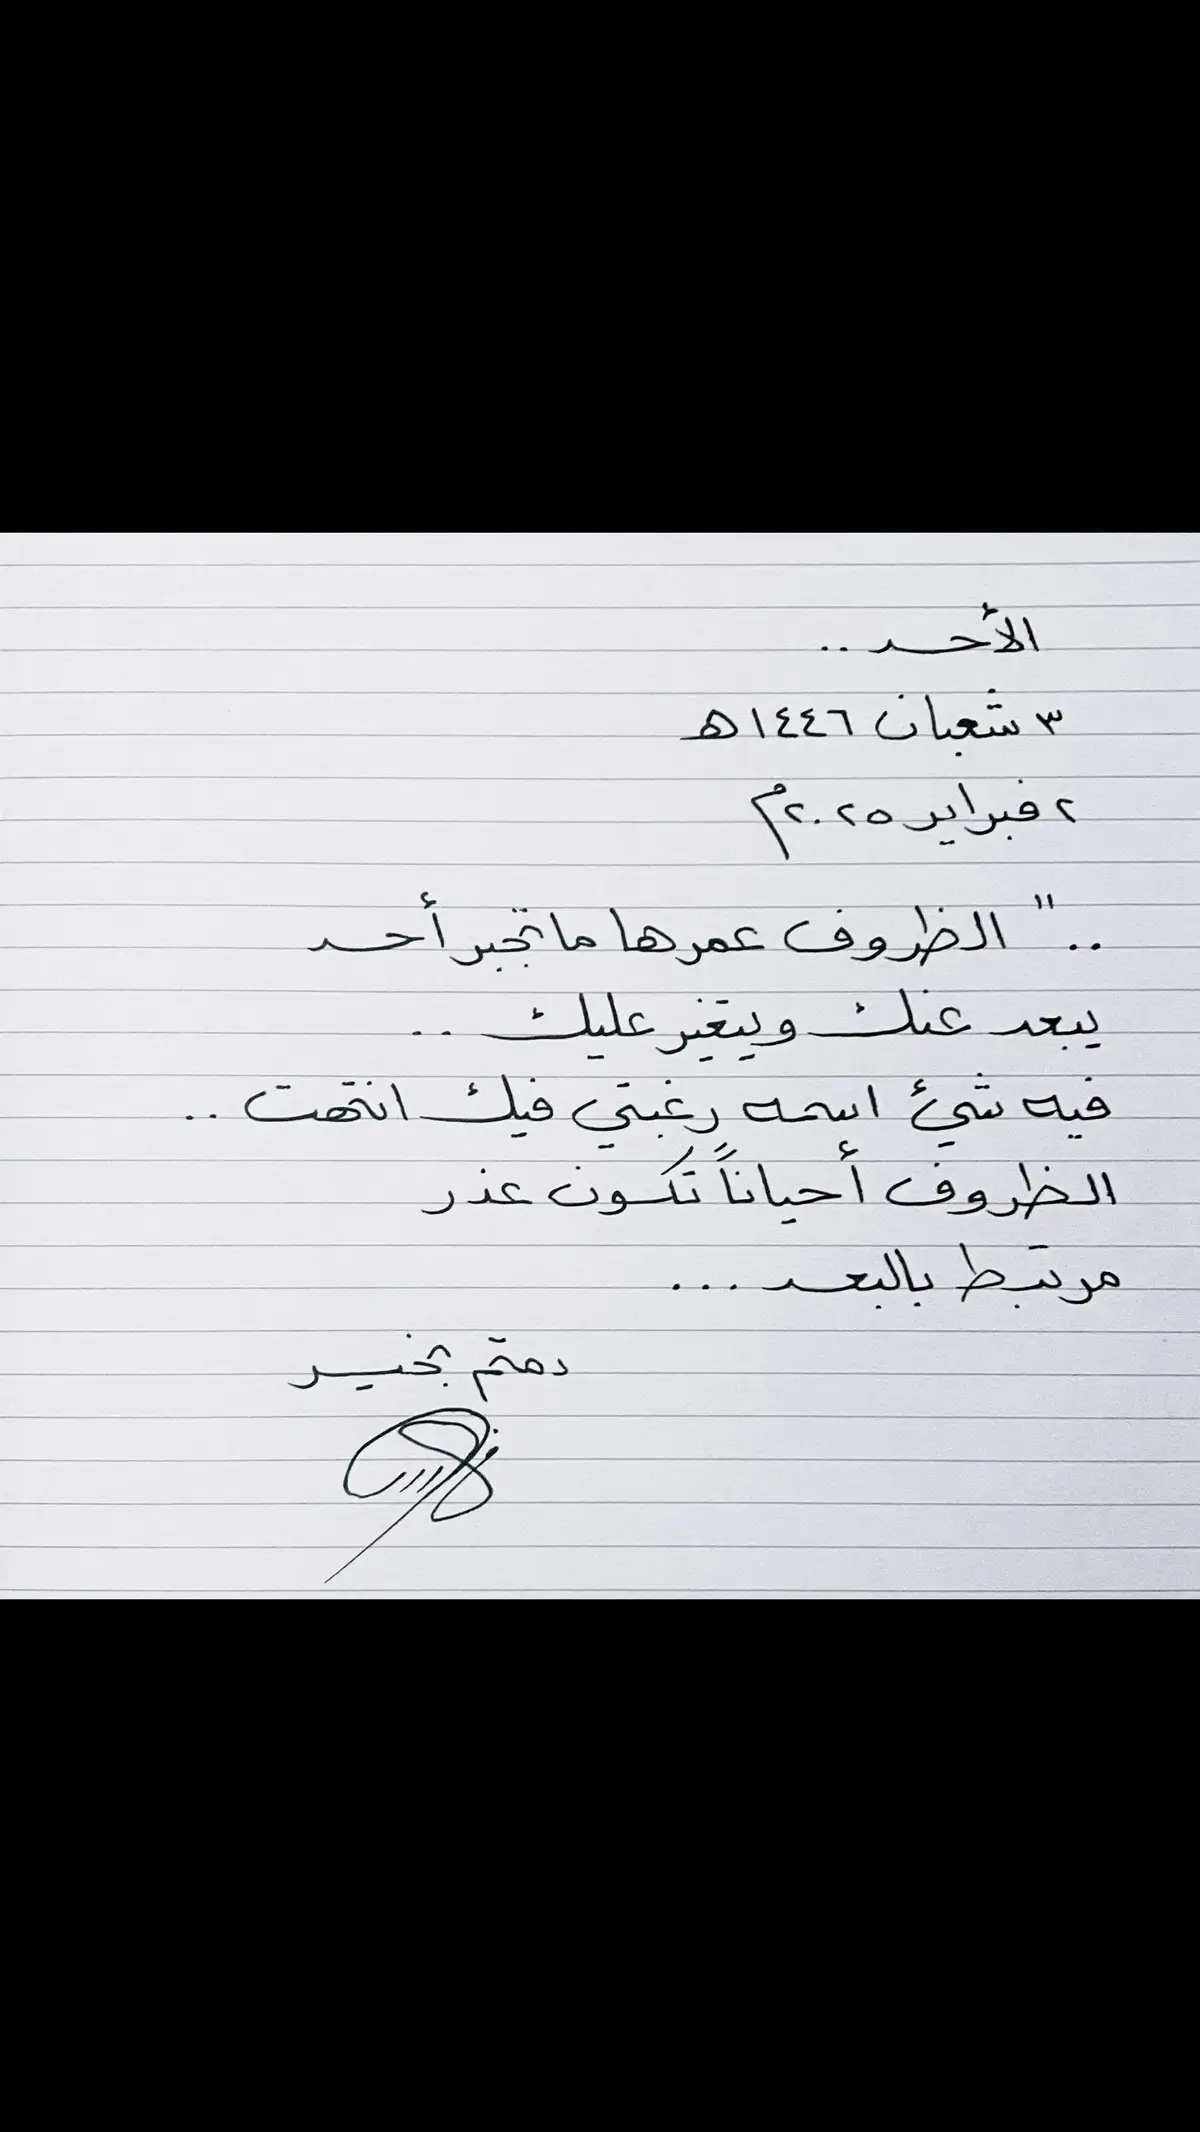 الأحـد ..
٣ شعبان ١٤٤٦هـ
٢ فبراير ٢٠٢٥م
.. " الظروف عمرها ماتجبر أحـد
يبعد عنك ويتغير عليك ..
فيه شيئ اسمه رغبتي فيك انتهت ..
الظروف أحياناً تكون عذر
مرتبط بالبعـد ...
دمتم بخيـر